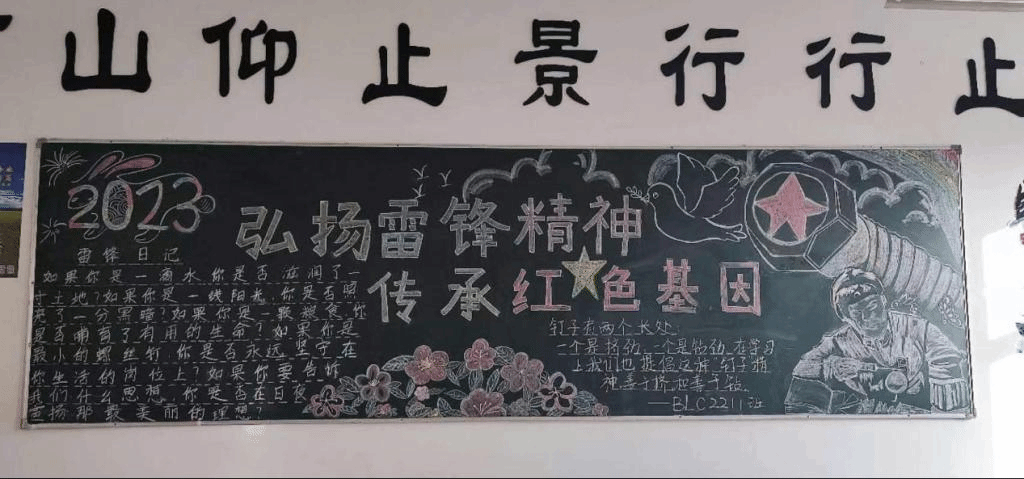 山仰止景行行止
2023
弘扬雷锋精神
传承红色基因
雷锋日记
如果你是一滴水,你是否滋润了一
寸土地?如果你是一线阳光,你是否照
亮了一分黑暗?如果你是一颗粮食,你
是否哺育了有用的生命?如果你是
最小的螺丝钉,你是否永远坚守在
你生活的岗位上?如果你要告诉
我们什么思想,你是否在日夜
宣扬那最美丽的理想?
钉子有两个长处:
一个是挤劲,一个是钻劲,在学习
上我们也提倡这种"钉子"精
神善于挤和善于钻。
——BLC2211班